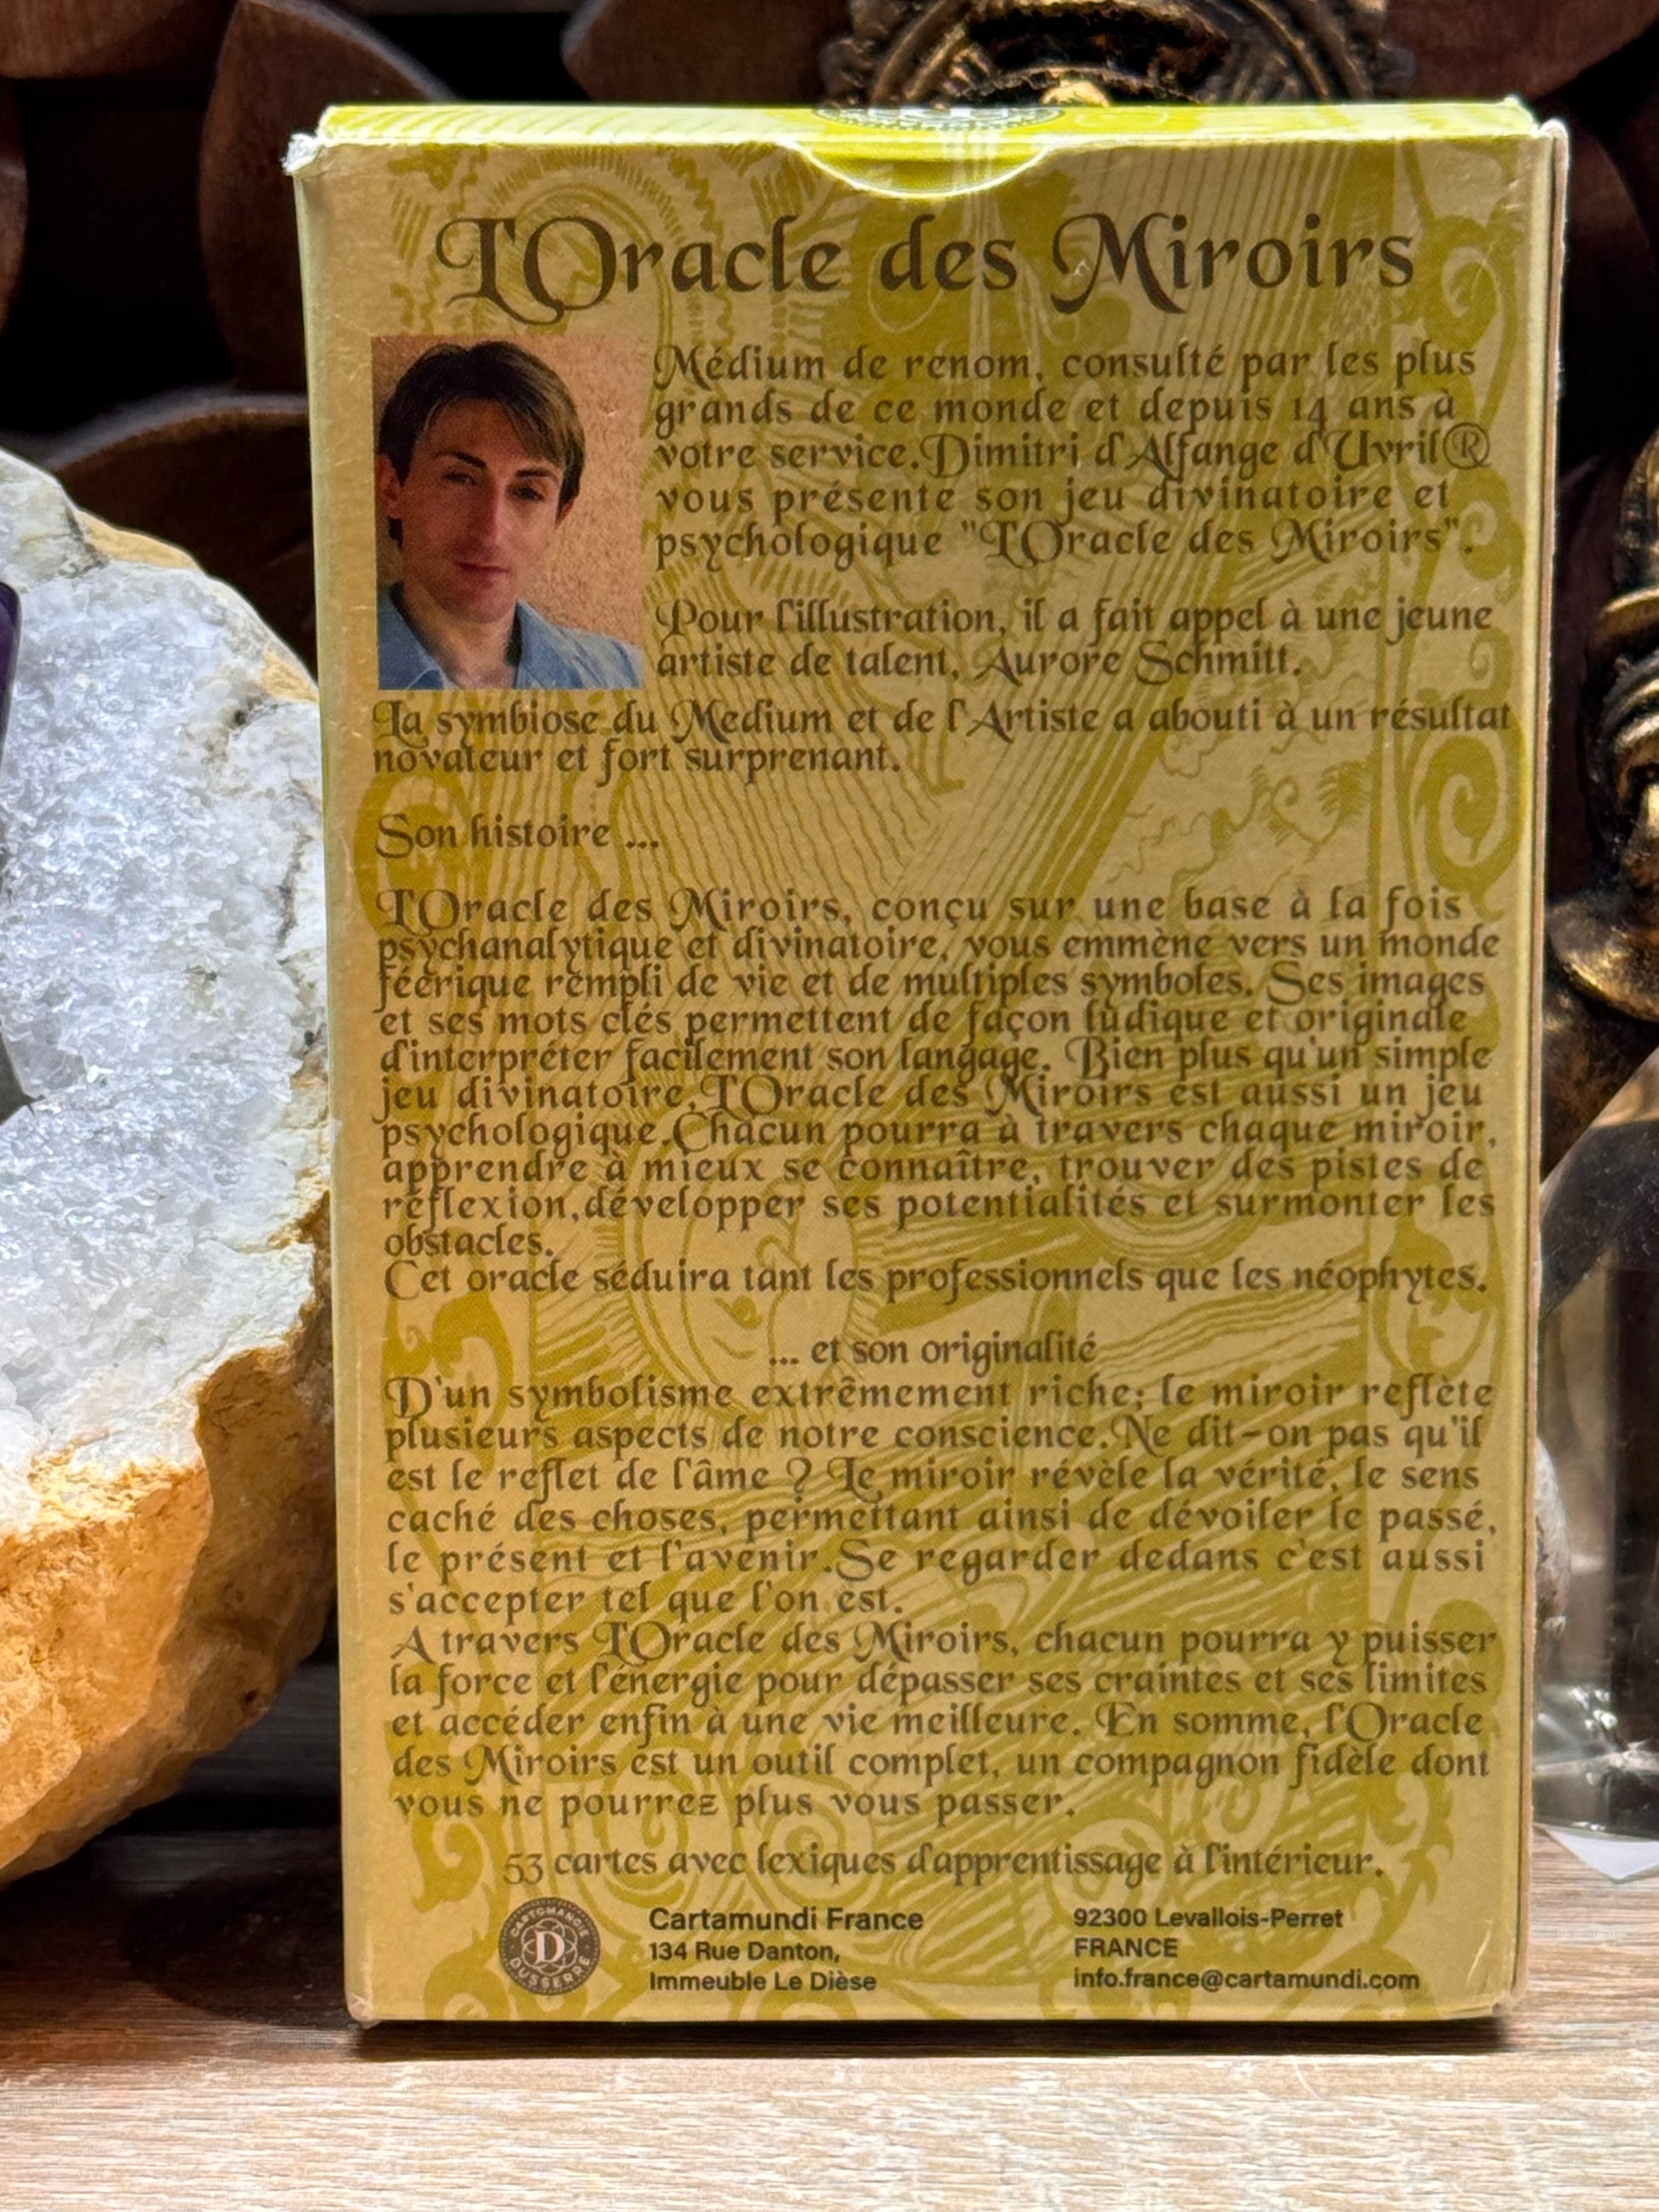 L'Oracle des Miroirs
Médium de renom, consulté par les plus
grands de ce monde et depuis 14 ans à
votre service.Dimitri d'Alfange d'Uvril®
vous présente son jeu divinatoire et
psychologique "L'Oracle des Miroirs".
Pour l'illustration, il a fait appel à une jeune
artiste de talent, Aurore Schmitt.
La symbiose du Medium et de l'Artiste a abouti à un résultat
novateur et fort surprenant.
Son histoire ...
L'Oracle des Miroirs, conçu sur une base à la fois
psychanalytique et divinatoire, vous emmène vers un monde
féérique rempli de vie et de multiples symboles. Ses images
et ses mots clés permettent de façon ludique et originale
d'interpréter facilement son langage. Bien plus qu'un simple
jeu divinatoire,L'Oracle des Miroirs est aussi un jeu
psychologique.Chacun pourra à travers chaque miroir,
apprendre à mieux se connaître, trouver des pistes de
réflexion,développer ses potentialités et surmonter les
obstacles.
Cet oracle séduira tant les professionnels que les néophytes.
... et son originalité
D'un symbolisme extrêmement riche; le miroir reflète
plusieurs aspects de notre conscience.Ne dit-on pas qu'il
est le reflet de l'âme ? Le miroir révèle la vérité, le sens
caché des choses, permettant ainsi de dévoiler le passé,
le présent et l'avenir.Se regarder dedans c'est aussi
s'accepter tel que l'on est.
A travers L'Oracle des Miroirs, chacun pourra y puiser
la force et l'énergie pour dépasser ses craintes et ses limites
et accéder enfin à une vie meilleure. En somme, l'Oracle
des Miroirs est un outil complet, un compagnon fidèle dont
vous ne pourrez plus vous passer.
53 cartes avec lexiques d'apprentissage à l'intérieur.
CARTOMANCIE
D
DUSSERRE
Cartamundi France
134 Rue Danton,
Immeuble Le Dièse
92300 Levallois-Perret
FRANCE
info.france@cartamundi.com